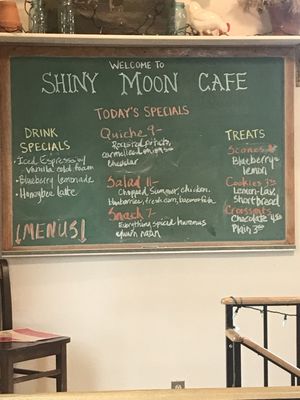 WELCOME TO
SHINY MOON CAFE
TODAY'S SPECIALS
DRINK
SPECIALS
Iced Espresso w/
Vanilla cold foam
Blueberry lemonade
Honeybee latte
↓MENUS↓
Quiche 9-
Roasted potato,
caramelized onions
cheddar
Salad 11-
Chopped, summer, chicken,
blueberries, fresh corn,
Snack 7-
Everything spiced hummus
naan
TREATS
Scones
Blueberry-
lemon
Cookies
Lemon-Lav,
Shortbread
Croissants
Chocolate 4.50
Plain 3.50